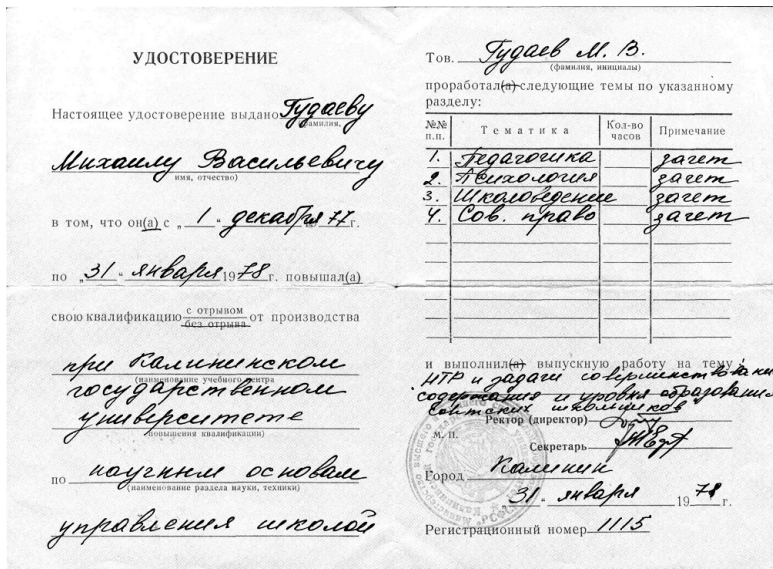 УДОСТОВЕРЕНИЕ
Настоящее удостоверение выдано Гудаеву
фамилия,
Михаилу Васильевичу
имя, отчество)
в том, что он(а) с „1“ декабря 77 г.
по „31“ января 1978 г. повышал(а)
свою квалификацию с отрывом от производства
без отрыва
при Калининском
(наименование учебного центра
государственном
университете
повышения квалификации)
по научным основам
(наименование раздела науки, техники)
управления школой
Тов. Гудаев М. В.
(фамилия, инициалы)
проработал(а) следующие темы по указанному
разделу:
№№ п.п. Тематика Кол-во часов Примечание
1. Педагогика зачет
2. Психология зачет
3. Школоведение зачет
4. Сов. право зачет
и выполнил(а) выпускную работу на тему
НТР и задачи совершенствования
содержания и уровня образования
советских школьников
Ректор (директор)
М. П.
Секретарь
Город Калинин
„31“ января 1978 г.
Регистрационный номер 1115